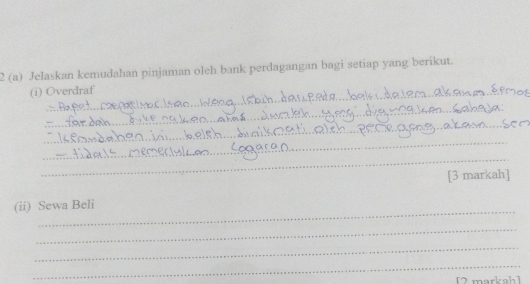 2 (a) Jelaskan kemudahan pinjaman oleh bank perdagangan bagi setiap yang berikut.
(i) Overdraf
- Dapat mengeluarkan wang lebih daripada baki dalam akaun semas
- faedah dikenakan atas jumlah yang digunakan sahaja
- Kemudahan ini boleh dinikmati oleh pemegang akaun sem
- tidak memerlukan cagaran
[3 markah]
(ii) Sewa Beli
[2 markah]